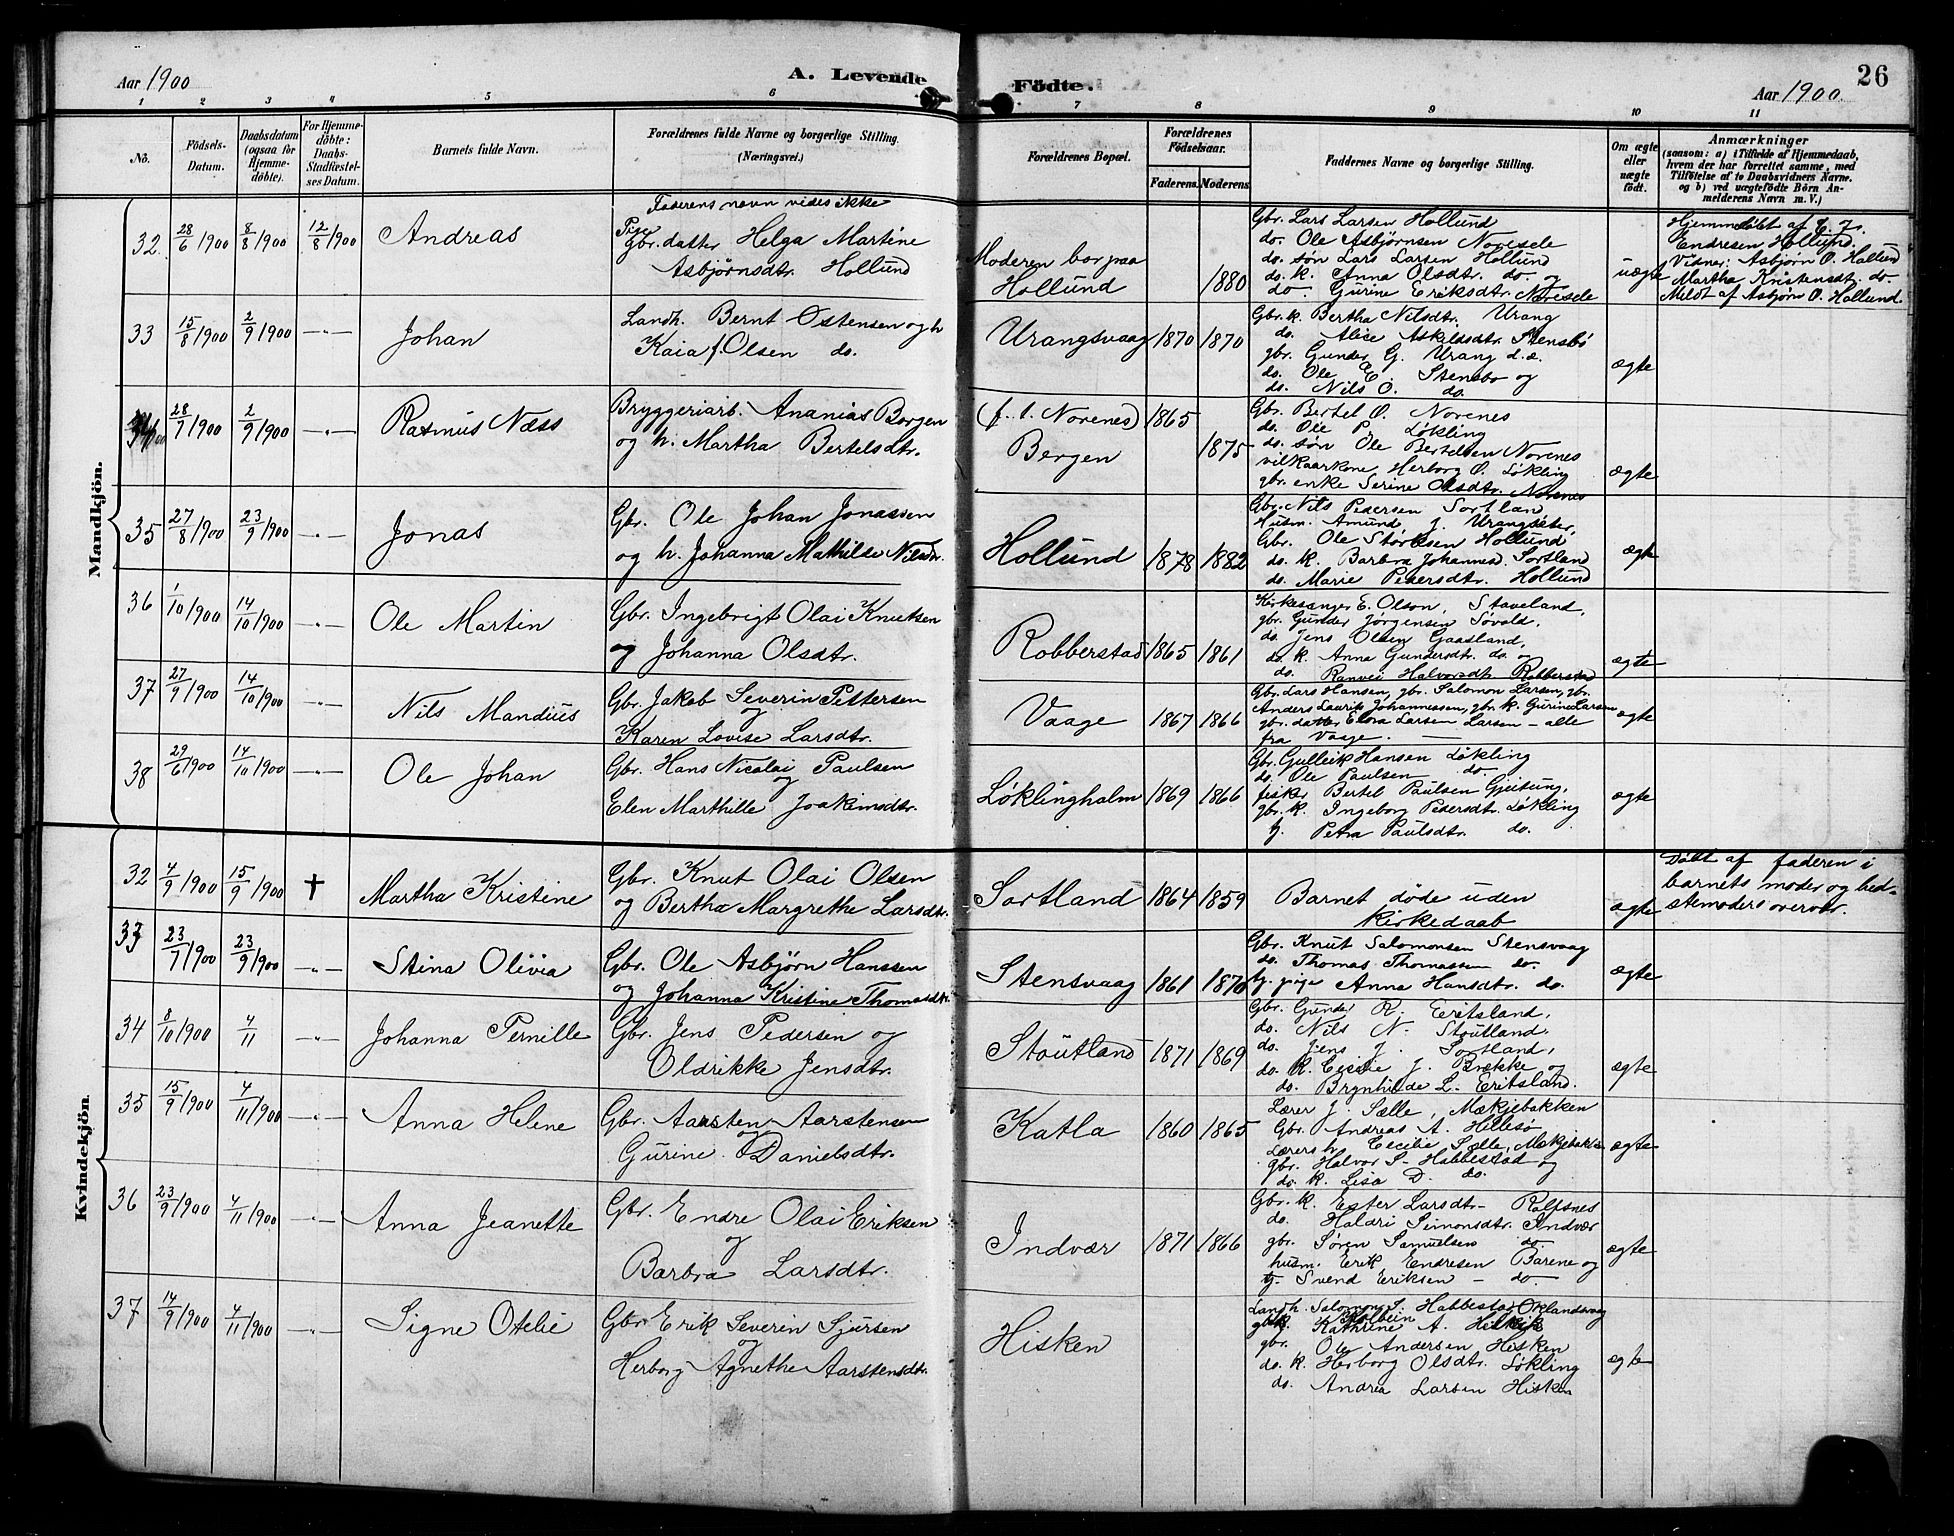 Aar 1900
A. Levende Födte.
26
Aar 1900.
1 2 3 4 5 6 7 8 9 10 11
No.
Födsels-
Datum.
Daabsdatum
(ogsaa for
Hjemme-
döbte).
For Hjemme-
döbte:
Daabs-
Stadfæstel-
ses Datum.
Barnets fulde Navn.
Forældrenes fulde Navne og borgerlige Stilling.
(Næringsvei.)
Forældrenes Bopæl.
Forældrenes
Födselsaar.
Faderens. Moderens.
Faddernes Navne og borgerlige Stilling.
Om ægte
eller
uægte
födt.
Anmærkninger
(saasom: a) i Tilfælde af Hjemmedaab,
hvem der har forrettet samme, med
Tilföielse af to Daabsvidners Navne.
og b) ved uægtefödte Börn An-
melderens Navn m. V.)
Mandkjön.
32. 28/6 1900 8/8 1900 12/8 1900 Andreas
Faderens navn vides ikke
Pige
Gbr. datter Helga Martine
Asbjørnsdtr. Hollund
Moderen bor paa
Hollund
1880
Gbr. Lars Larsen Hollund
do. Ole Asbjørnsen Noresele
do. søn Lars Larsen Hollund
do. k. Anna Olsdtr. do. og
do. Gurine Eriksdtr. Noresele
uægte
Hjemmedøbt af E. J.
Endresen Hollund.
Vidner: Asbjørn O. Hollund
Martha Kristensdtr. do.
Meldt af Asbjørn O. Hollund.
33 15/8 1900 2/9 1900 —"— Johan
Landh. Bernt Østensen og h
Kaia f. Olsen do.
Urangsvaag 1870 1870
Gbr. k. Bertha Nilsdtr. Urang
do. Alise Askildsdtr. Stensbø
gbr. Gunder G. Urang d.e.
do. Ole E. Stensbø og
do. Nils O. do.
ægte
34 28/7 1900 2/9 1900 —"— Rasmus Næss
Bryggeriarb. Ananias Borgen
og h. Martha Bertelsdtr.
(f. t. Norenes)
Bergen
1865
1875
Gbr. Bertel O. Norenes
do. Ole P. Løkling
do. søn Ole Bertelsen Norenes
vilkaarkone Herborg O. Løkling
gbr. enke Serine Olsdtr. Norenes
ægte
35 27/8 1900 23/9 1900 —"— Jonas
Gbr. Ole Johan Jonassen
og h. Johanna Mathilde Nilsdtr.
Hollund 1878 1882
Gbr. Nils Pedersen Sortland
Husm. Amund J. Urangsæter
Gbr. Ole Størksen Hollund
do. k. Barbra Johannesd. Sortland
do. Marie Pedersdtr. Hollund
ægte
36 1/10 1900 14/10 1900 —"— Ole Martin
Gbr. Ingebrigt Olai Knutsen
og Johanna Olsdtr.
Robberstad 1865 1861
Kirkesanger E. Olson, Staveland,
gbr. Gunder Jørgensen Søvold,
do. Jens Olsen Gaasland,
do. k. Anna Gundersdtr. do. og
do. Ranvei Halvorsdtr. Robberstad
ægte
37 27/9 1900 14/10 1900 —"— Nils Mandius
Gbr. Jakob Severin Pettersen
og
Karen Lovise Larsdtr.
Vaage 1867 1866
Gbr. Lars Hansen, gbr. Salomon Larsen, gbr.
Anders Laurits Johannessen, gbr. k. Gurine Larsen
gbr. datter Elora Larsen Larsen - alle
fra Vaage.
ægte
38 29/6 1900 14/10 1900 —"— Ole Johan
Gbr. Hans Nicolai Paulsen
og
Elen Marthille Joakimsdtr.
Løklingholm 1869 1866
Gbr. Gulleik Hansen Løkling
do. Ole Paulsen do.
fisker Bertel Paulsen Gjeitung,
gbr. k. Ingeborg Pedersdtr. Løkling
tj. Petra Paulsdtr. do.
ægte
Kvindekjön.
32 4/9 1900 15/9 1900 † Martha Kristine
Gbr. Knut Olai Olsen
og Bertha Margrethe Larsdtr.
Sortland 1864 1859
Barnet døde uden
kirkedaab
ægte
Døbt af faderen i
barnets moder og bed-
stemoders overvær.
33 23/7 1900 23/9 1900 —"— Stina Olivia
Gbr. Ole Asbjørn Hanssen
og Johanna Kristine Thomasdtr.
Stensvaag 1861 1870
Gbr. Knut Salomonsen Stensvaag
do. Thomas Thomassen do.
tj. pige Anna Hansdtr. do.
ægte
34 8/10 1900 4/11 —"— Johanna Pernille
Gbr. Jens Pedersen og
Oldrikke Jensdtr.
Stoutland 1871 1869
Gbr. Gunder R. Eritsland,
do. Nils N. Stoutland.
do. Jens J. Sortland,
do. k. Cecilie J. Brække og
do. Brynhilde L. Eritsland.
ægte
35 15/9 1900 4/11 1900 —"— Anna Helene
Gbr. Aarsten Aarstensen
og
Gurine Danielsdtr.
Katla 1860 1865
Lærer J. Sælle, Mækjebakken
Gbr. Andreas A. Hillesø
Lærers h. Cecilie Sælle, Mækjebakken
gbr. Halvor S. Habbestad og
do. k. Lisa D. do.
ægte
36 23/9 1900 4/11 1900 —"— Anna Jeanette
Gbr. Endre Olai Eriksen
og
Barbra Larsdtr.
Indvær 1871 1866
Gbr. k. Ester Larsdtr. Rolfsnes
do. Haldri Simonsdtr. Indvær
gbr. Søren Samuelsen do.
husm. Erik Endresen Barene og
tj. Svend Eriksen — do.
ægte
37 14/9 1900 4/11 1900 —"— Signe Otelie
Gbr. Erik Severin Sjursen
og
Herborg Agnethe Aarstensdtr.
Hisken
Landh. Salomon S. Habbestad Orlandsvaag
Kathrine A.
gbr. Ole Andersen Hisken
do. k. Herborg Olsdtr. Løkling
do. Andrea Larsen Hisken
ægte